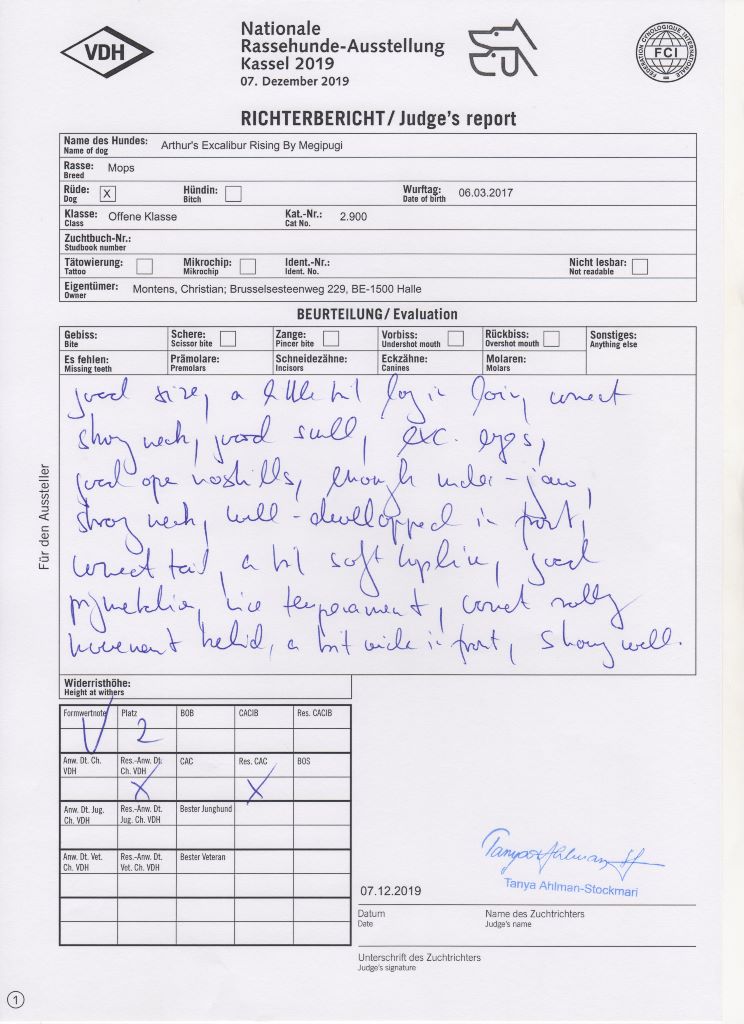 VDH
Nationale
Rassehunde-Ausstellung
Kassel 2019
07. Dezember 2019
FEDERATION CYNOLOGIQUE INTERNATIONALE
FCI
RICHTERBERICHT / Judge's report
Name des Hundes: Arthur's Excalibur Rising By Megipugi
Name of dog
Rasse: Mops
Breed
Rüde: X Hündin: Wurftag: 06.03.2017
Dog Bitch Date of birth
Klasse: Offene Klasse Kat.-Nr.: 2.900
Class Cat No.
Zuchtbuch-Nr.:
Studbook number
Tätowierung: Mikrochip: Ident.-Nr.: Nicht lesbar:
Tattoo Mikrochip Ident. No. Not readable
Eigentümer: Montens, Christian; Brusselsesteenweg 229, BE-1500 Halle
Owner
BEURTEILUNG / Evaluation
Gebiss: Schere: Zange: Vorbiss: Rückbiss: Sonstiges:
Bite Scissor bite Pincer bite Undershot mouth Overshot mouth Anything else
Es fehlen: Prämolare: Schneidezähne: Eckzähne: Molaren:
Missing teeth Premolars Incisors Canines Molars
good size, a little bit long in loin, correct
strong neck, good scull, exc. eyes,
good open nostrills, enough under-jaw,
strong neck, well-developped in front,
correct tail, a bit soft topline, good
pigmentation, nice temperament, correct rolly
movement behid, a bit wide in front, shown well.
Für den Aussteller
Widerristhöhe:
Height at withers
Formwertnote Platz BOB CACIB Res. CACIB
V 2
Anw. Dt. Ch. VDH Res.-Anw. Dt. Ch. VDH CAC Res. CAC BOS
X X
Anw. Dt. Jug. Ch. VDH Res.-Anw. Dt. Jug. Ch. VDH Bester Junghund
Anw. Dt. Vet. Ch. VDH Res.-Anw. Dt. Vet. Ch. VDH Bester Veteran
Tanya Ahlman-St
Tanya Ahlman-Stockmari
07.12.2019
Datum Name des Zuchtrichters
Date Judge's name
Unterschrift des Zuchtrichters
Judge's signature
1